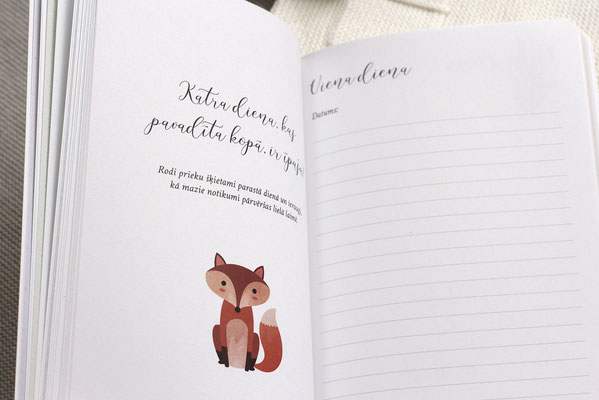 Katra diena, kas
pavadīta kopā, ir īpaša.
Rodi prieku šķietami parastā dienā un ieraugi,
kā mazie notikumi pārvēršas lielā laimē.
Viena diena
Datums: